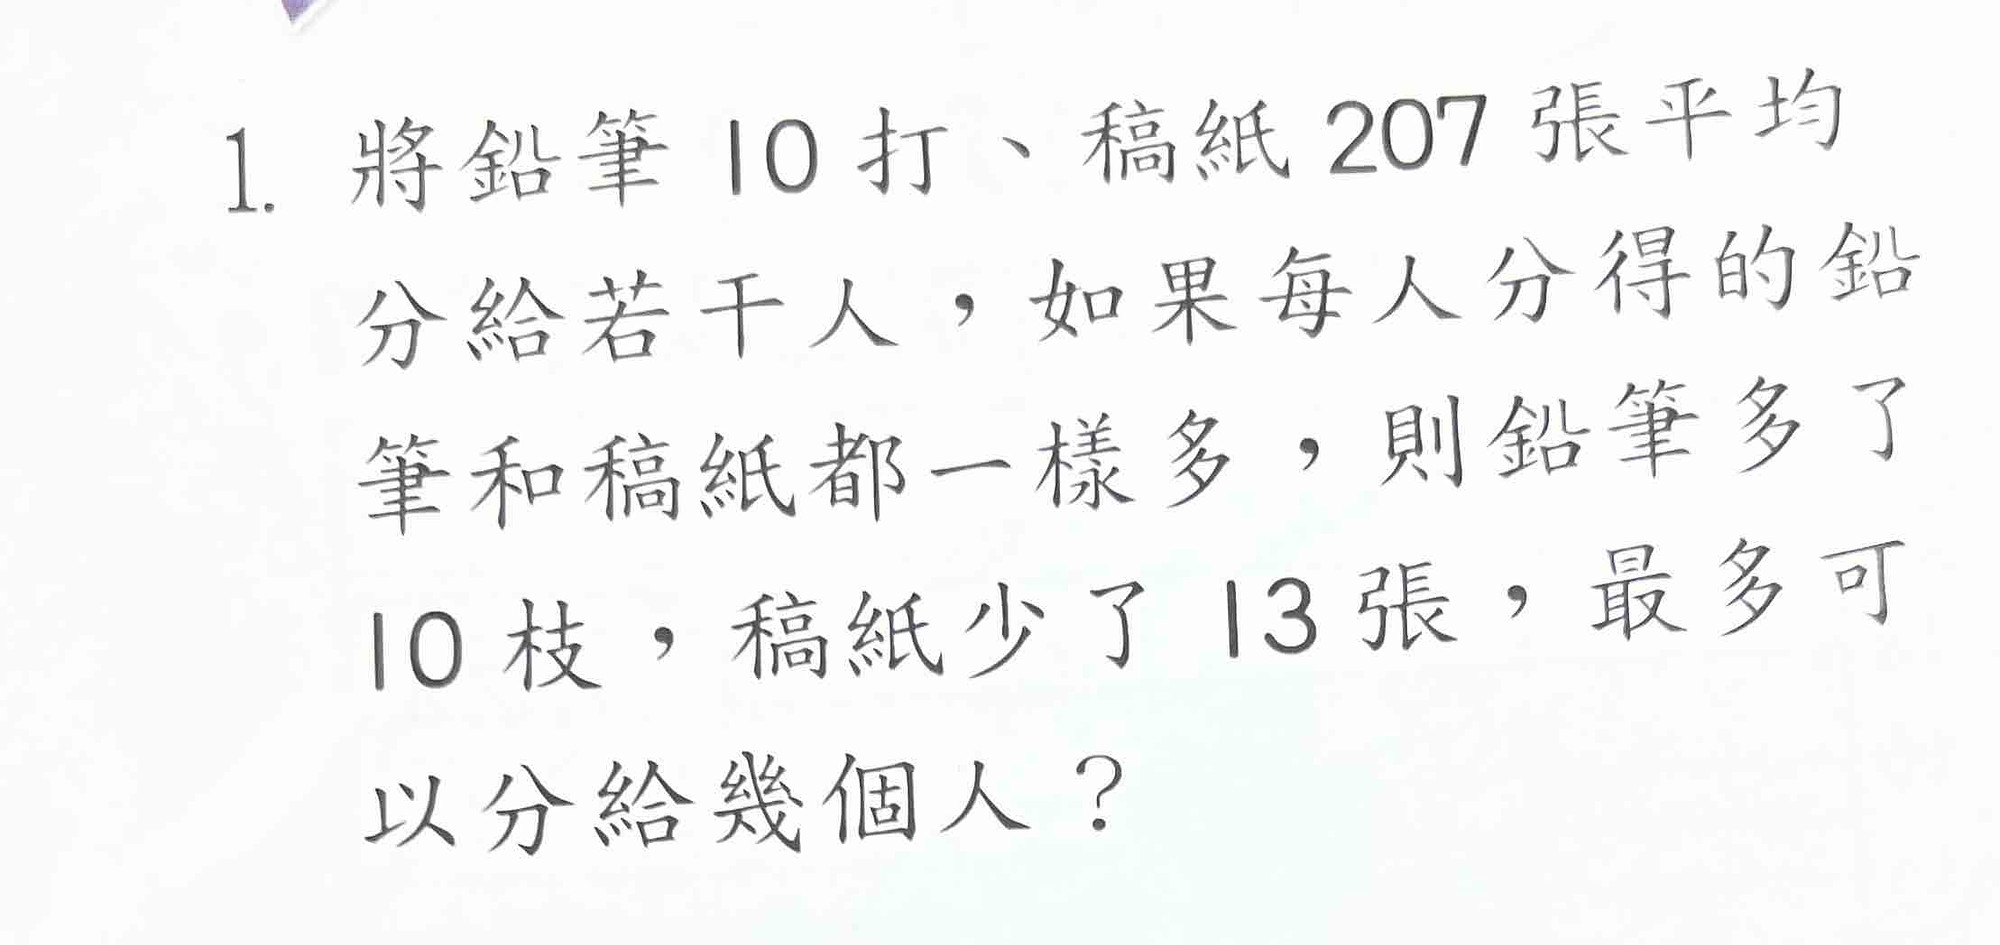 1. 將鉛筆 10 打、稿紙 207 張平均
分給若干人，如果每人分得的鉛
筆和稿紙都一樣多，則鉛筆多了
10 枝，稿紙少了 13 張，最多可
以分給幾個人？